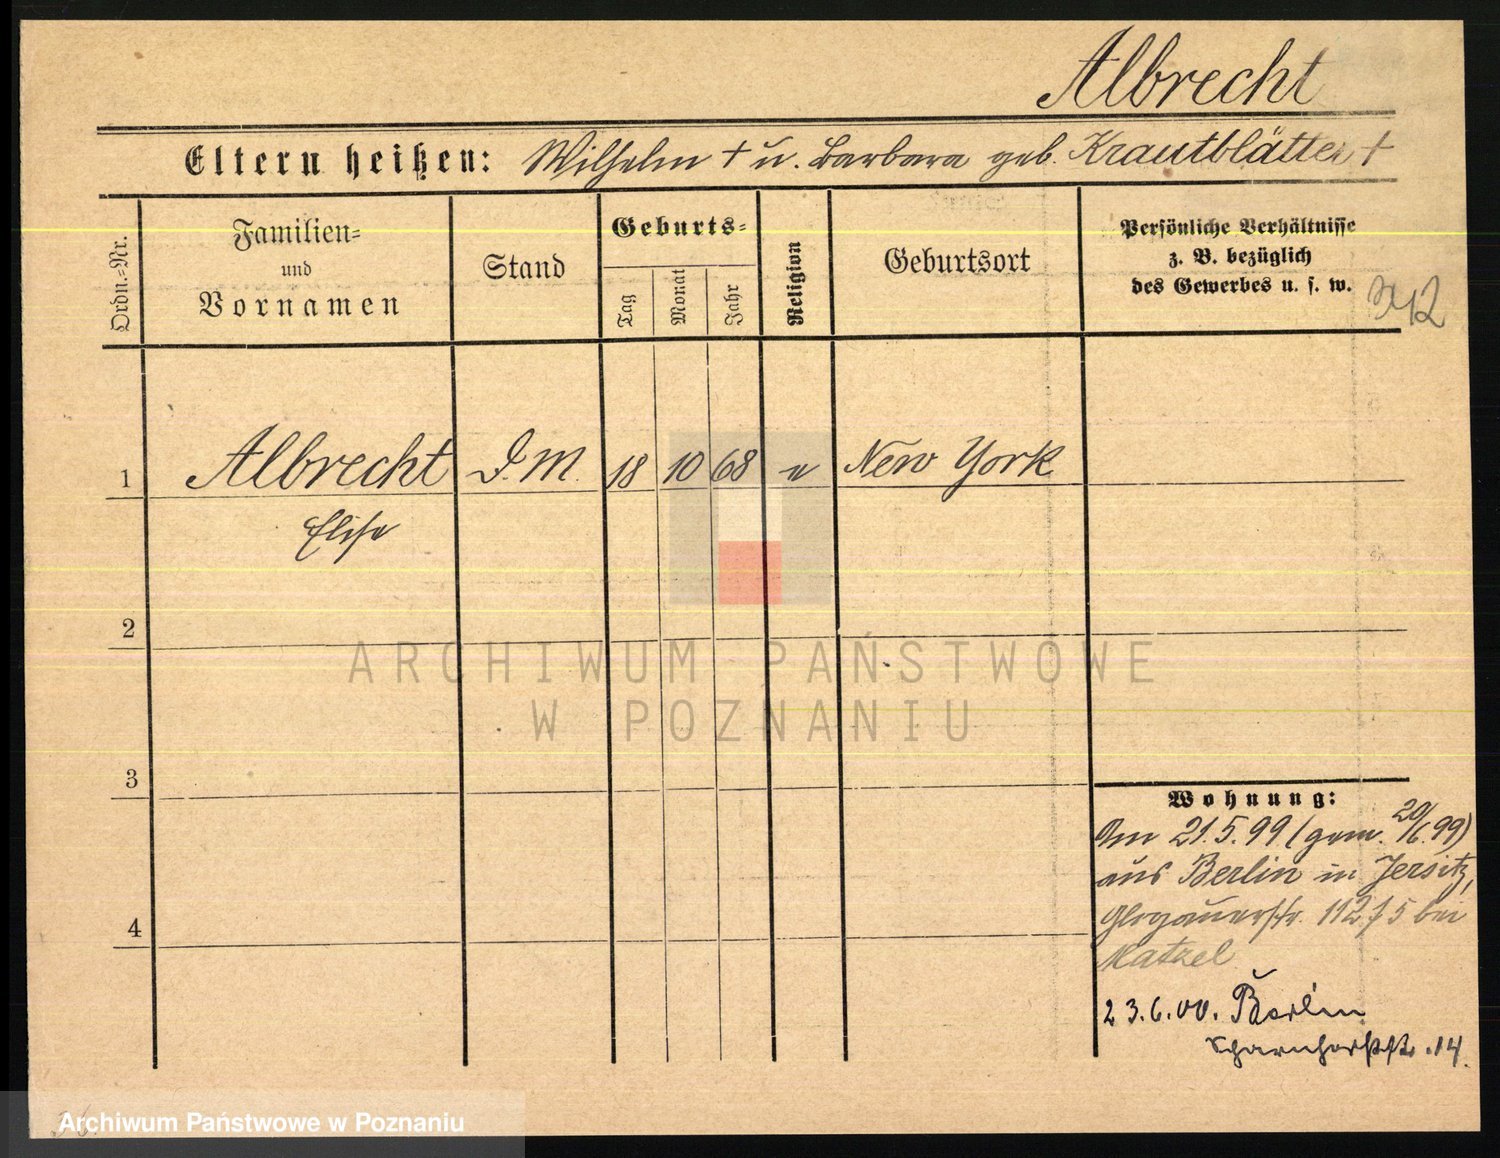 Albrecht
Eltern heißen: Wilhelm † u. Barbara geb. Krautblätter †
Ordn.=Nr.
Familien=
und
Vornamen
Stand
Geburts=
Tag
Monat
Jahr
Religion
Geburtsort
Persönliche Verhältnisse
z. B. bezüglich
des Gewerbes u. s. w.
1 Albrecht D. M. 18 10 68 e New York
Elise
2
3
4
Wohnung:
Am 21.5.99 (gem. 20/6.99)
aus Berlin in Jersitz,
Glogauerstr. 112 f 5 bei
Matzel
23.6.00. Berlin
Scharnhorststr. 14.
ARCHIWUM PAŃSTWOWE
W POZNANIU
Archiwum Państwowe w Poznaniu